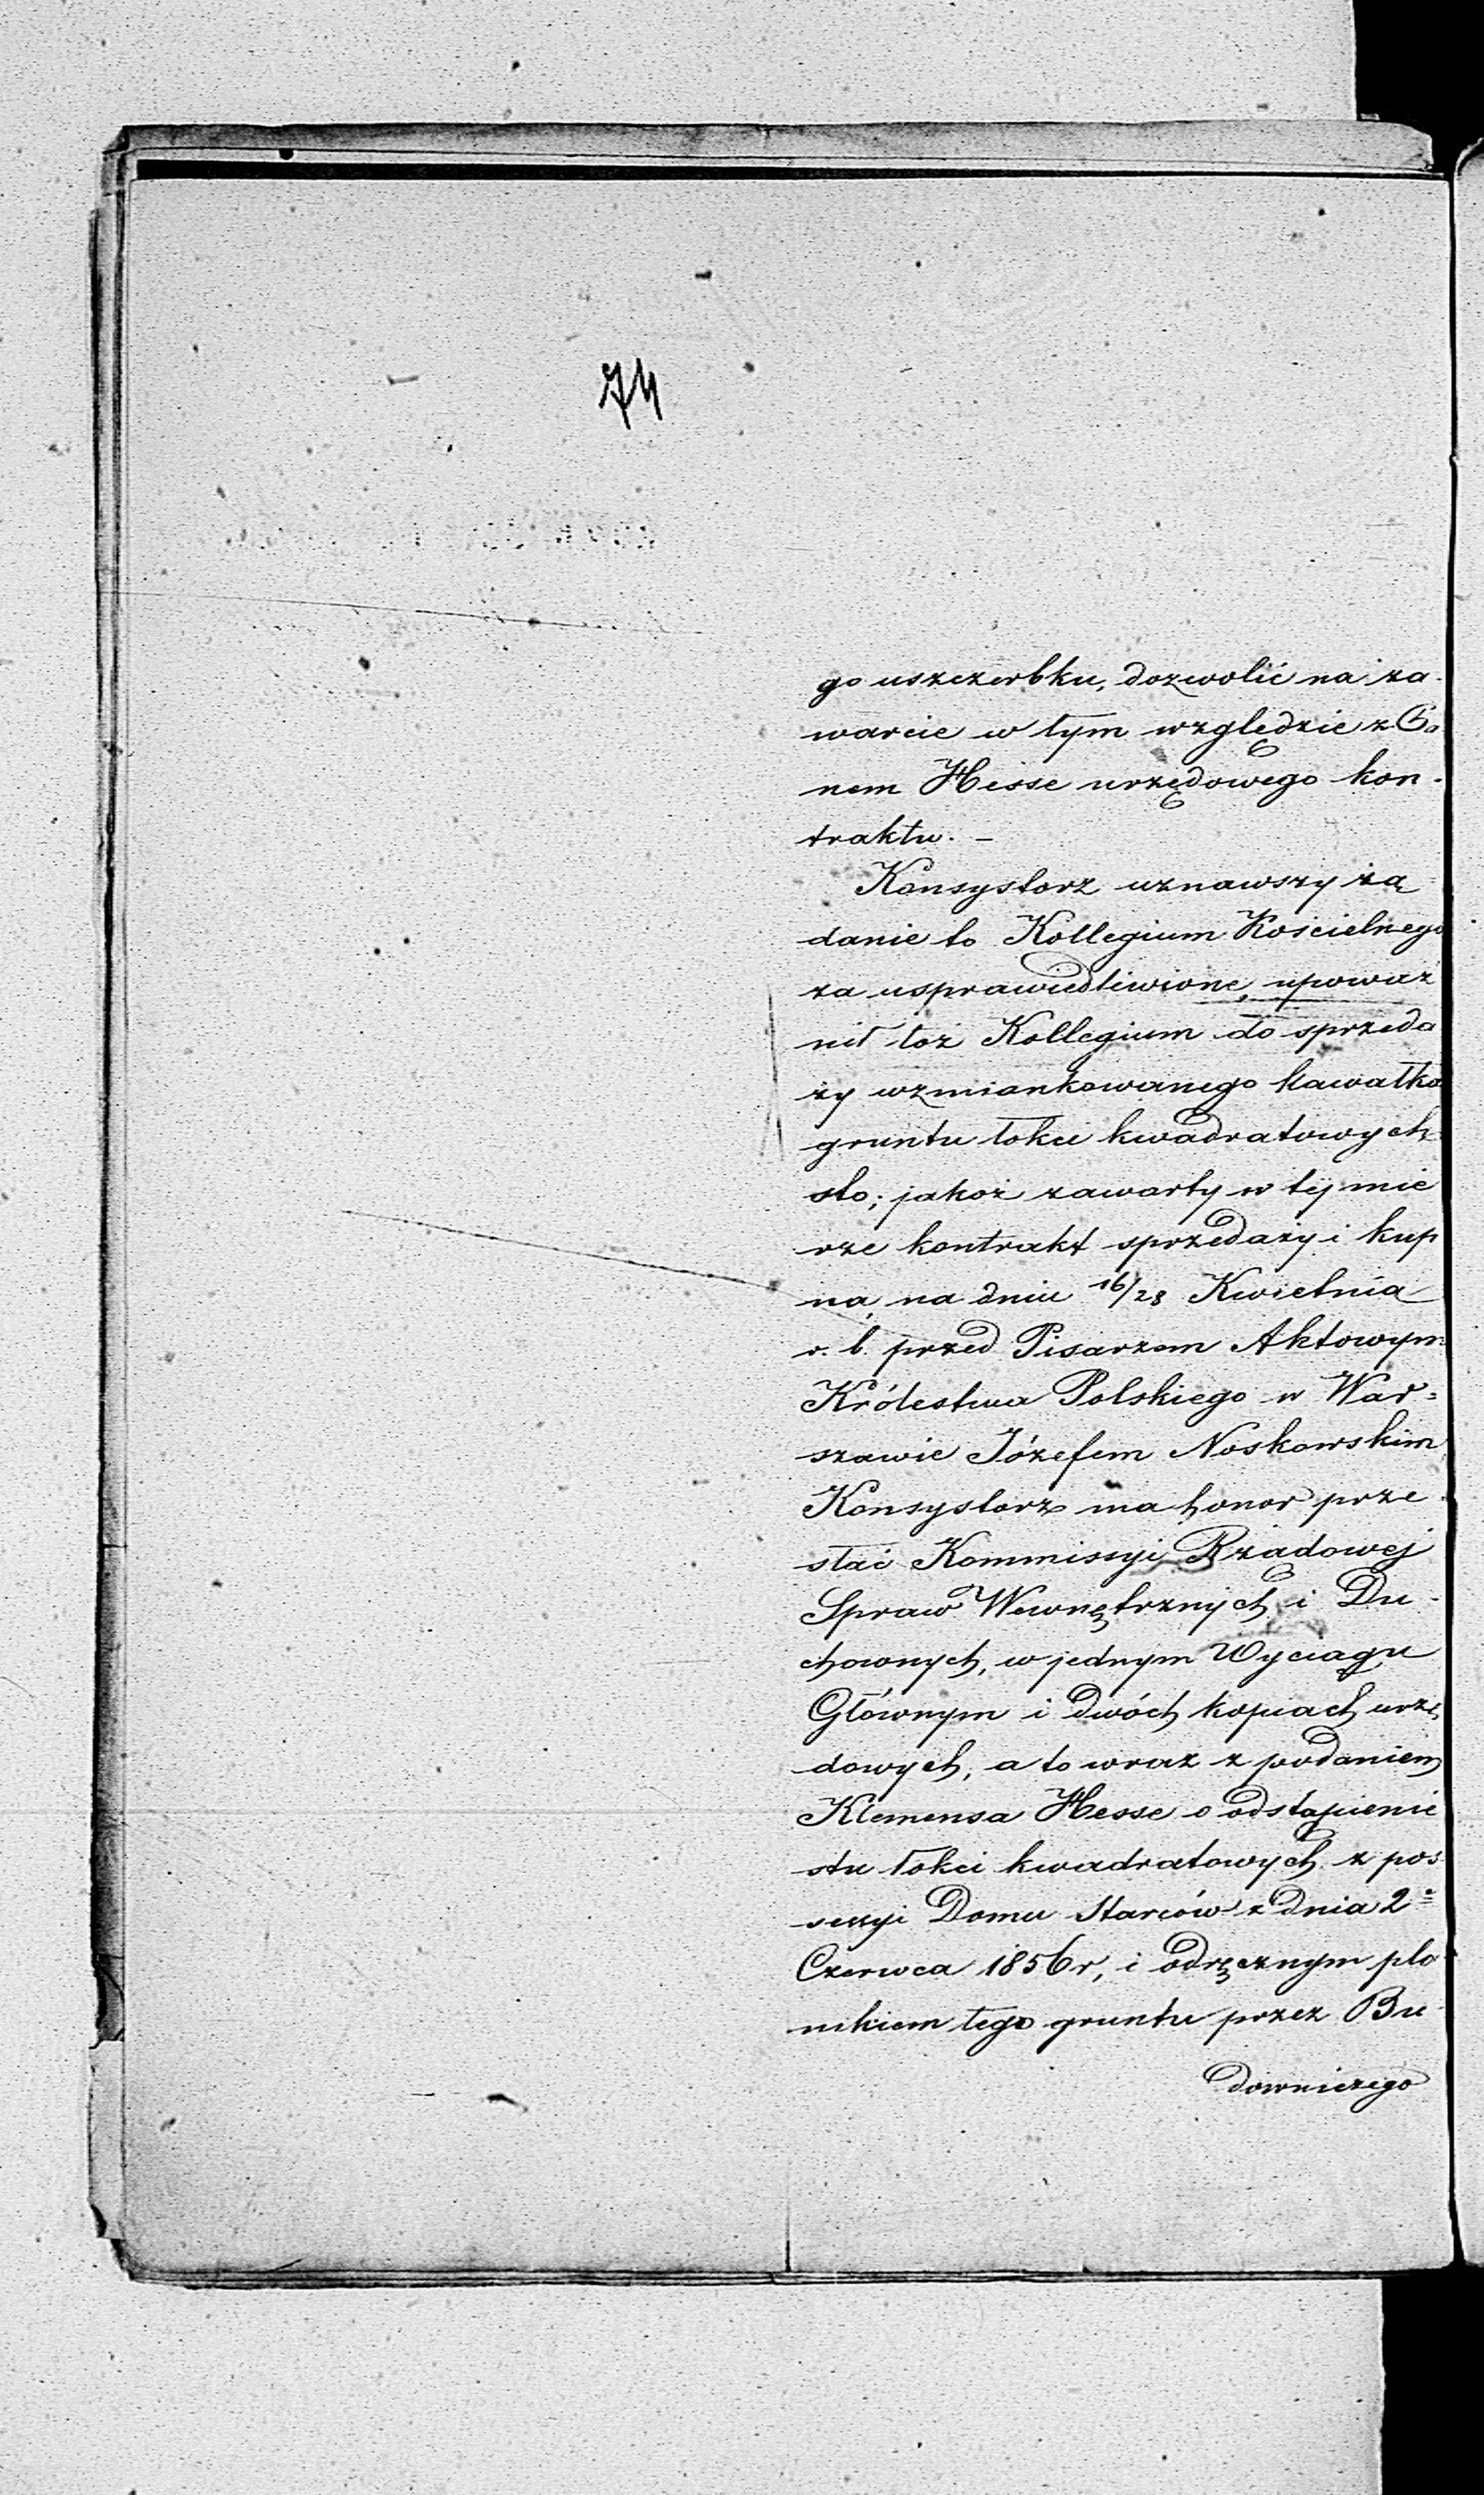 74
go uszczerbku, dozwolić na za-
warcie w tym względzie z Pa
nem Hesse urzędowego kon-
traktu. –
Konsystorz uznawszy żą
danie to Kollegium Kościelnego
za usprawiedliwione, upoważ
nił toż Kollegium do sprzeda
ży wzmiankowanego kawałka
gruntu łokci kwadratowych
sto; jakoż zawarty w tej mie
rze kontrakt sprzedaży i kup
na, na dniu 16/28 Kwietnia
r. b. przed Pisarzem Aktowym
Królestwa Polskiego w War=
szawie Józefem Noskowskim
Konsystorz ma honor prze
słać Kommissyi Rządowej
Spraw Wewnętrznych i Du-
chownych, w jednym Wyciągu
Głównym i dwóch kopiach urzę
dowych, a to wraz z podaniem
Klemensa Hesse o odstąpienie
stu łokci kwadratowych z pos
sessyi Domu Starców z dnia 2
Czerwca 1856 r, i odręcznym pla
nikiem tego gruntu przez Bu
downiczego